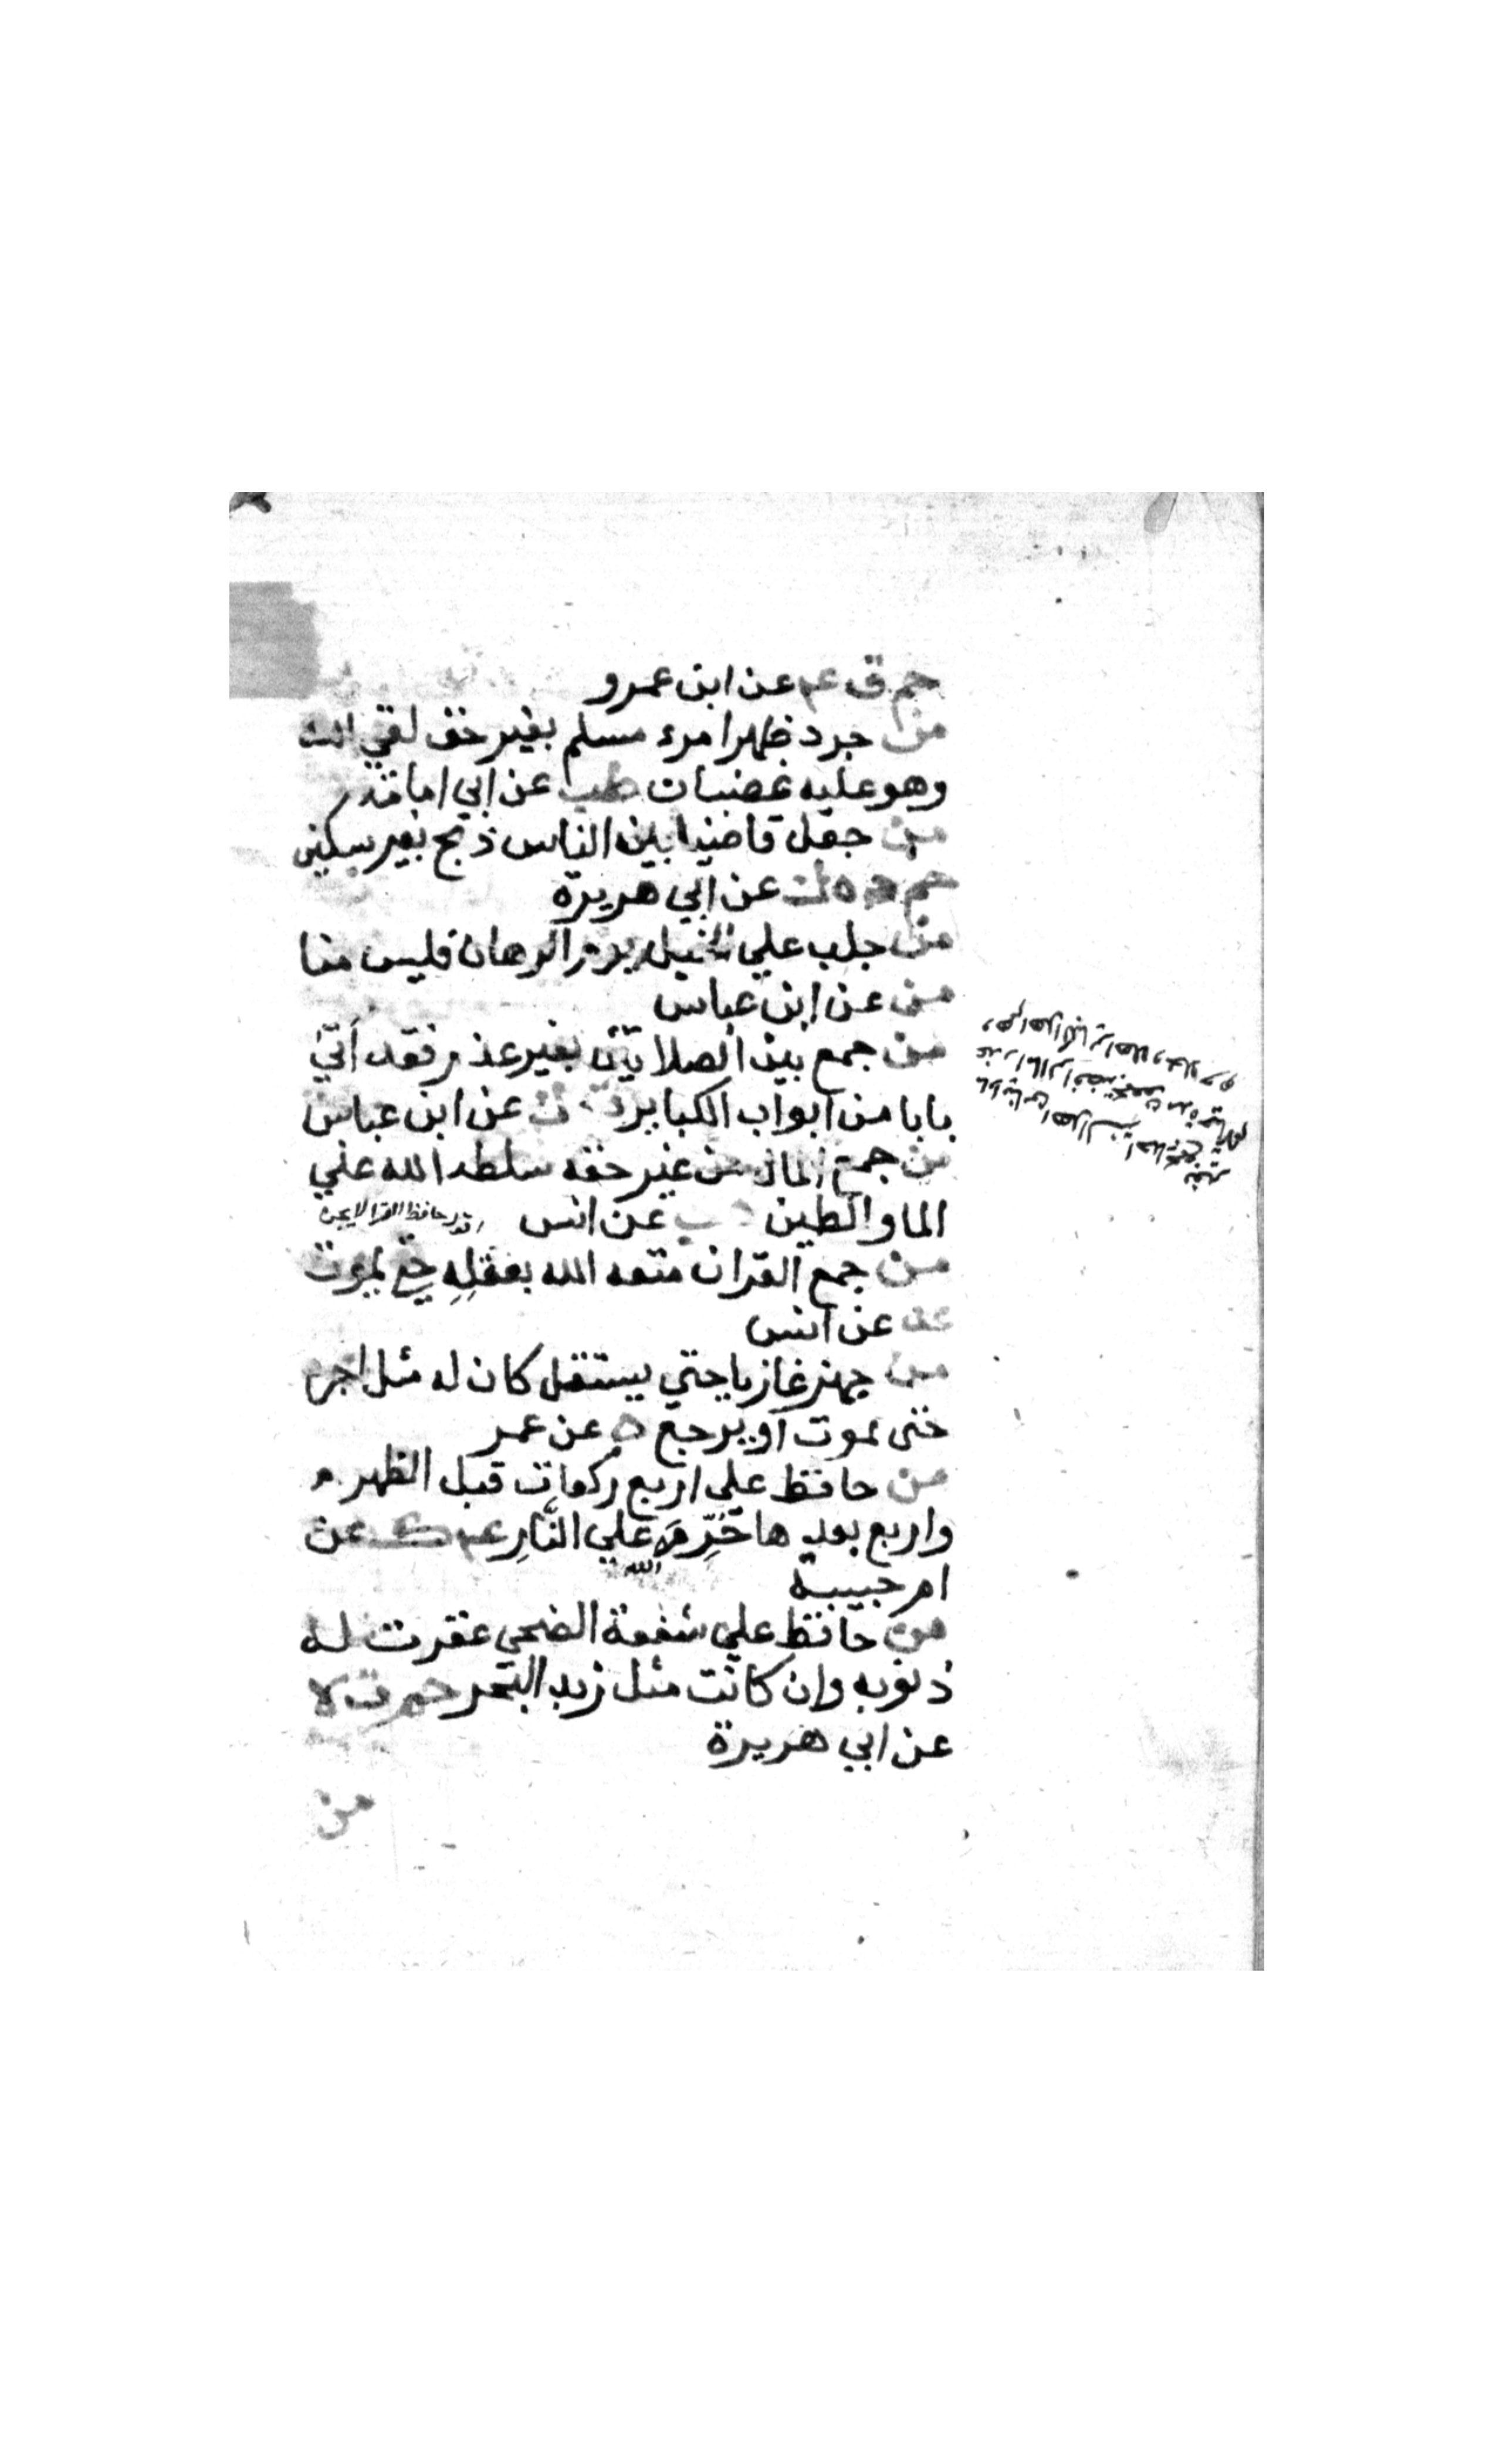 حم ق عم عن ابن عمرو
من جرد ظهر امرء مسلم بغير حق لقي الله
وهو عليه غضبان طب عن ابي امامة
من جعل قاضيا بين الناس ذبح بغير سكين
حم د ه ك عن ابي هريرة
من جلب علي الخيل يوم الرهان فليس منا
عن ابن عباس
من جمع بين الصلاتين بغير عذر فقد أتي
بابا من ابواب الكباير ت ك عن ابن عباس
من جمع المال من غير حقه سلطه الله علي
الما والطين هب عن انس
من جمع القران متعه الله بعقلِهِ حتي يموت
عد عن انس
من جهز غازيا حتي يستقل كان له مثل اجره
حتى يموت او يرجع ه عن عمر
من حافظ علي اربع ركعات قبل الظهر
واربع بعدها حَرَّمَهُ الله علي النَّارِ عم ك عن
ام حبيبة
من حافظ علي شفعة الضحى غفرت له
ذنوبه وان كانت مثل زبد البحر حم ت ه
عن ابي هريرة
من